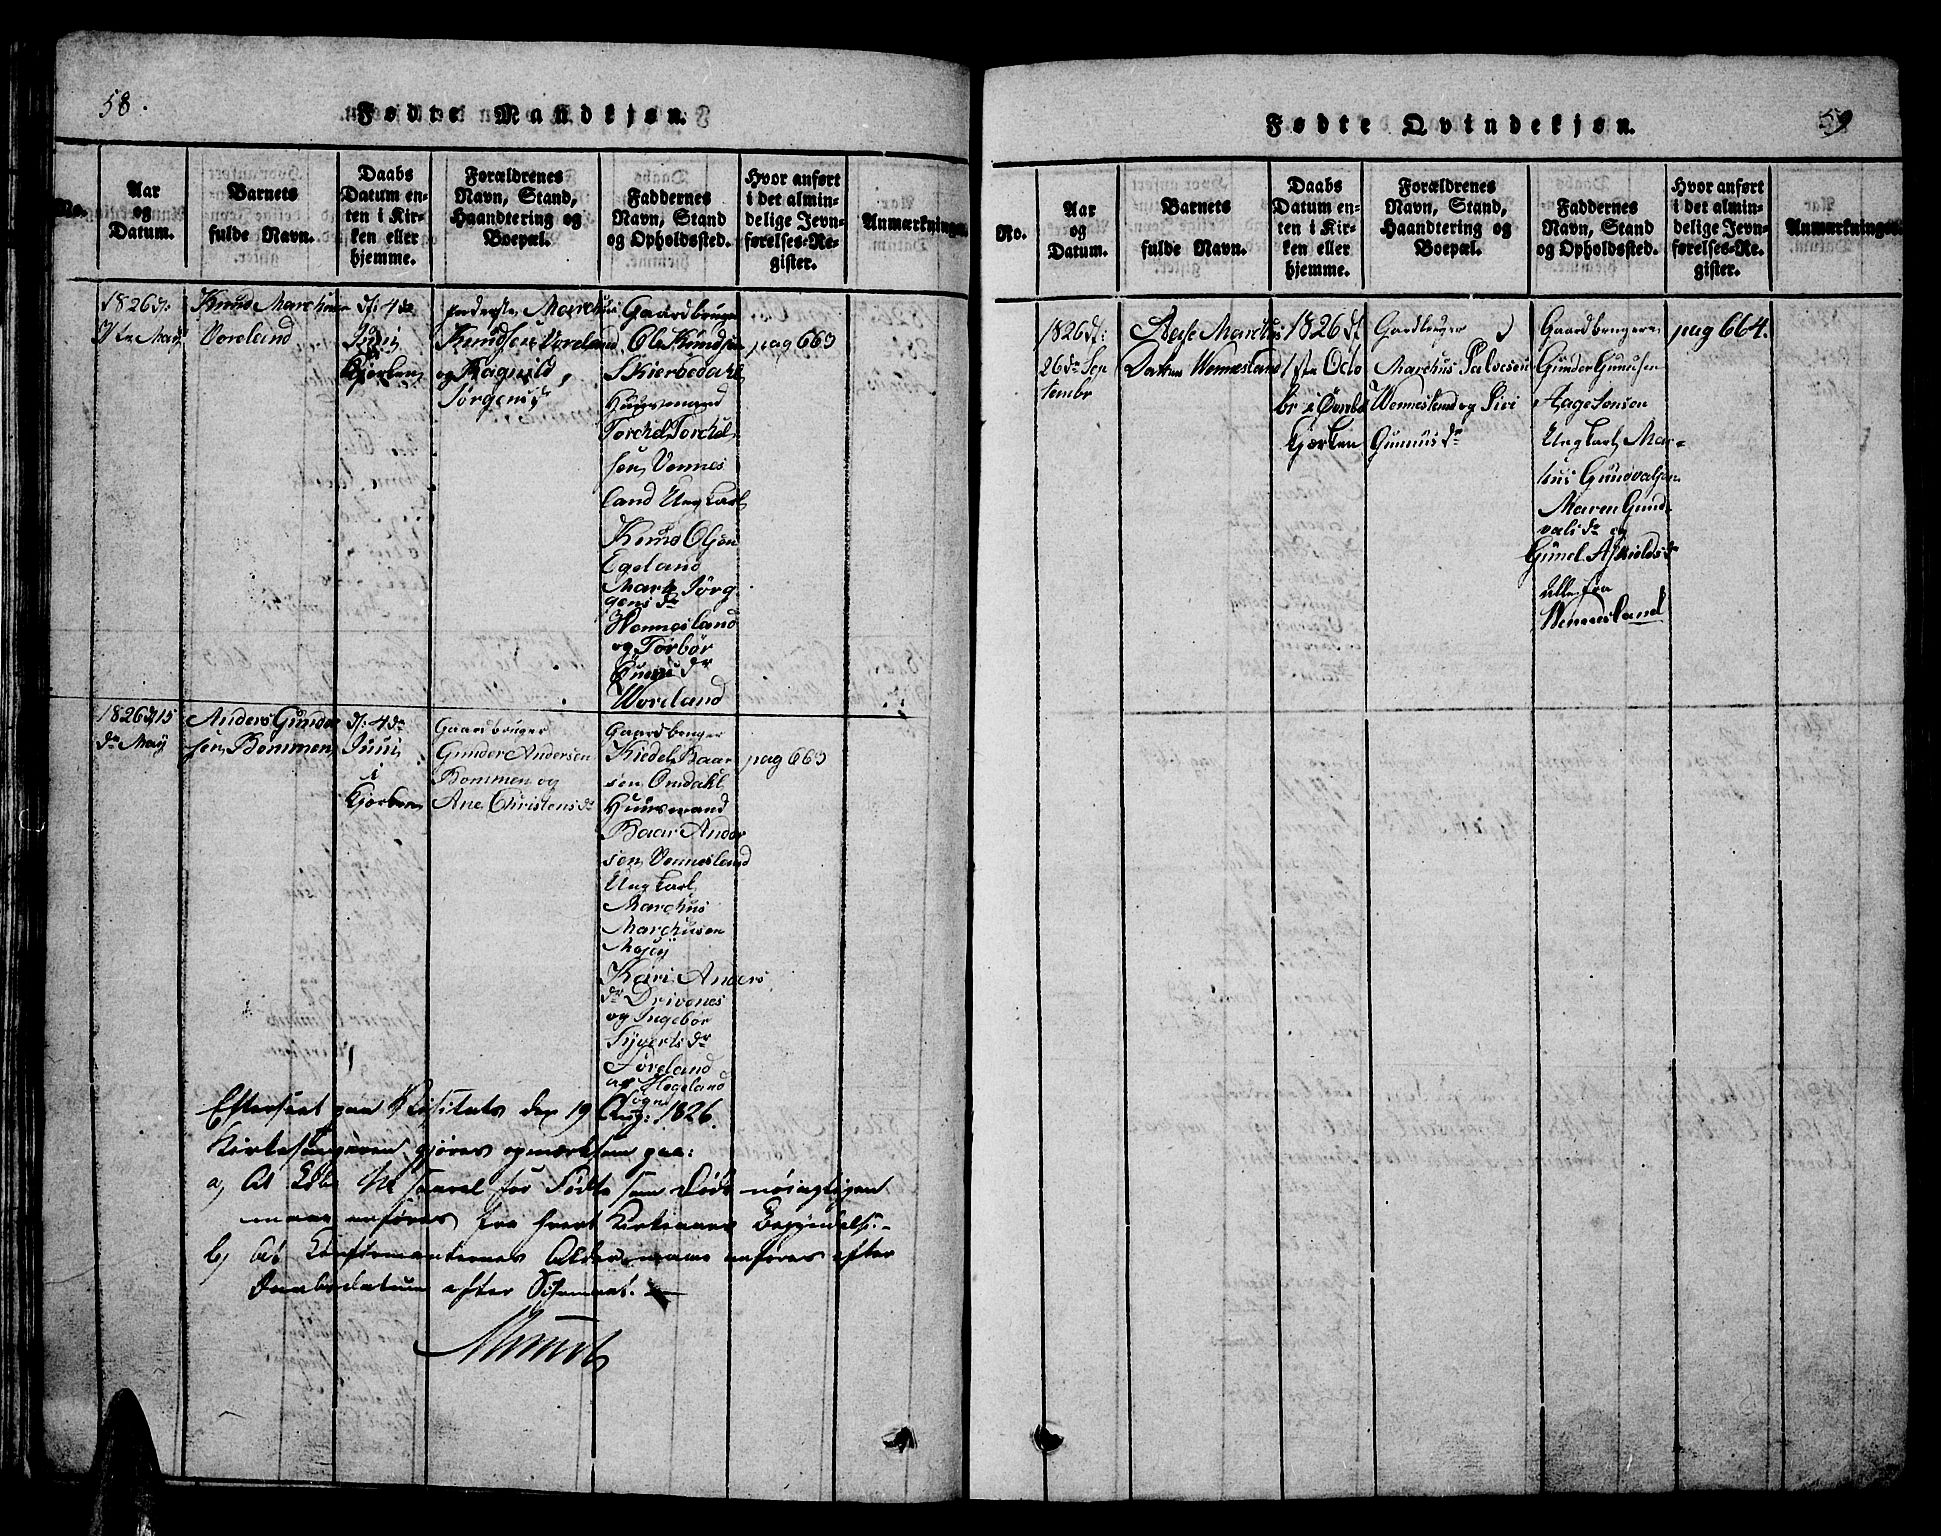 58.
Fødte Mandkjøn.
No.
Aar
og
Datum.
Barnets
fulde Navn.
Daabs
Datum en-
ten i Kir-
ken eller
hjemme.
Forældrenes
Navn, Stand,
Haandtering og
Boepæl.
Faddernes
Navn, Stand
og Opholdssted.
Hvor anført
i det almin-
delige Jevn-
førelses-Re-
gister.
Anmærkninger.
1826
May
Knud Marchusen
Voreland
4de
Juni
i
Kjerken
Marchus
Knudsen Voreland
og Ragnild
Jørgensdr
Gaardbruger
Ole Knudsen
Skierbedahl
Huusmand
Torchel Torchel-
sen Vennes
land Ung karl
Knud Olsen
Egeland
Jørg-
gensdr
Wennesland
og Torbør
Voreland
pag 663
1826 15
de May
Anders Gunder
sen Bommen
4de
Juni
i
Kjerken
Gaardbruger
Gunder Andersen
Bommen og
Ane Christensdr
Gaardbruger
Kiedel Baar
sen Omdahl
Huusmand
Baar Ander
sen Vennesland
Ung karl
Marchus
Marchusen
Kari Anders
dr Drivenes
og Ingebør
Sijvertsdr
Føreland
af Hegeland
Sogn
pag 663
Efterseet paa Visitats den 19 Aug: 1826.
Kirkesangeren gjøres opmærksom paa:
a) At saavel for Fødte som Døde nøiagtigen
maae anføres fra hvert Kirkeaars Begyndelse.
b) At Confirmanternes Alder maae anføres efter
Daabsdatum efter
59
Fødte Qvindekjøn.
No.
Aar
og
Datum.
Barnets
fulde Navn.
Daabs
Datum en-
ten i Kir-
ken eller
hjemme.
Forældrenes
Navn, Stand,
Haandtering og
Boepæl.
Faddernes
Navn, Stand
og Opholdssted.
Hvor anført
i det almin-
delige Jevn-
førelses-Re-
gister.
Anmærkninger.
1826
26de Sep
tembr
Marchus
Datter Wennesland
1826
1ste Octo
br i
Kjerken
Gardbruger
Marchus Salvesen
Wennesland og Siri
Gunnusdr
Gaardbrugerne
Gunder Gundsen
Aage Jensen
Ung karl Mar-
kus Gundvalsen
Maren Gund-
valsdr og
Gunel Askieldsdr
alle fra
Wennesland
pag 664.